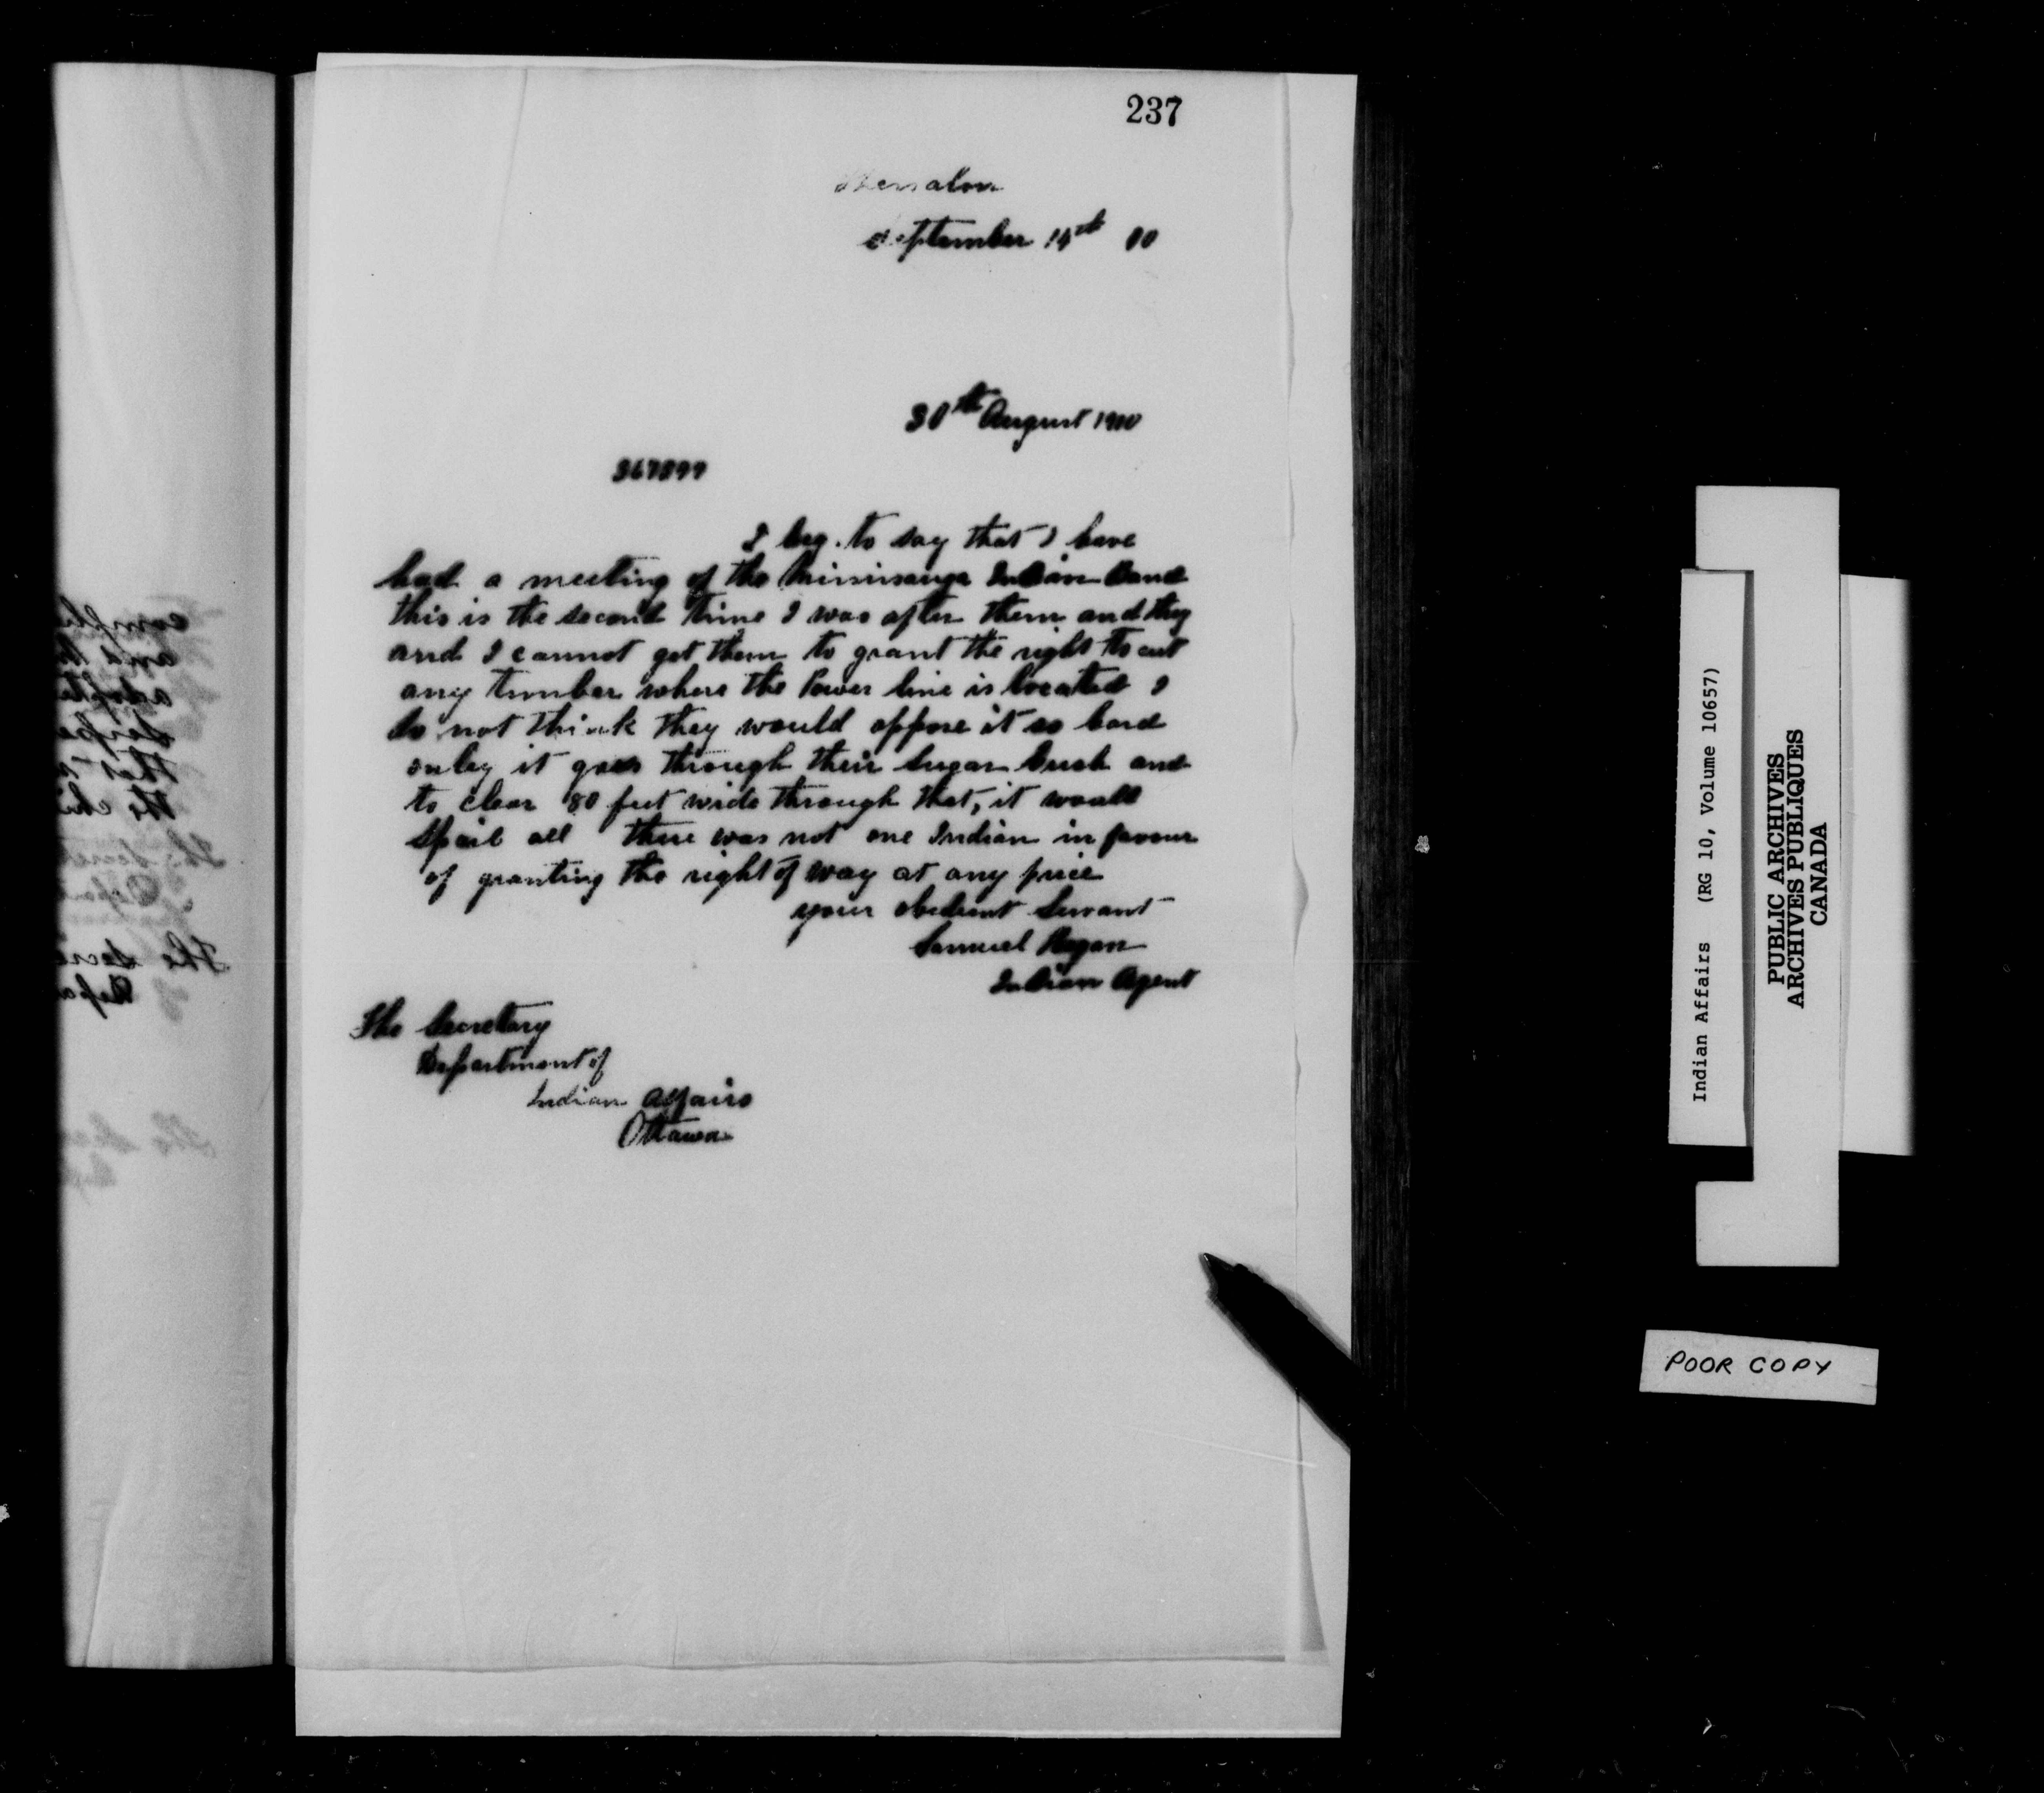 237
Thessalon
September 14th 10
30th August 1910
367899
I beg to say that I have
had a meeting of the Mississauga Indian Band
this is the second time I was after them and they
and I cannot get them to grant the right to cut
any timber where the Power line is located I
do not think they would oppose it so hard
onley it goes through their Sugar bush and
to clear 80 feet wide through that, it would
Spoil all there was not one Indian in favour
of granting the right of way at any price
your obedient Servant
Samuel Hagan
Indian Agent
The Secretary
Department of
Indian Affairs
Ottawa
Indian Affairs (RG 10, Volume 10657)
PUBLIC ARCHIVES
ARCHIVES PUBLIQUES
CANADA
POOR COPY